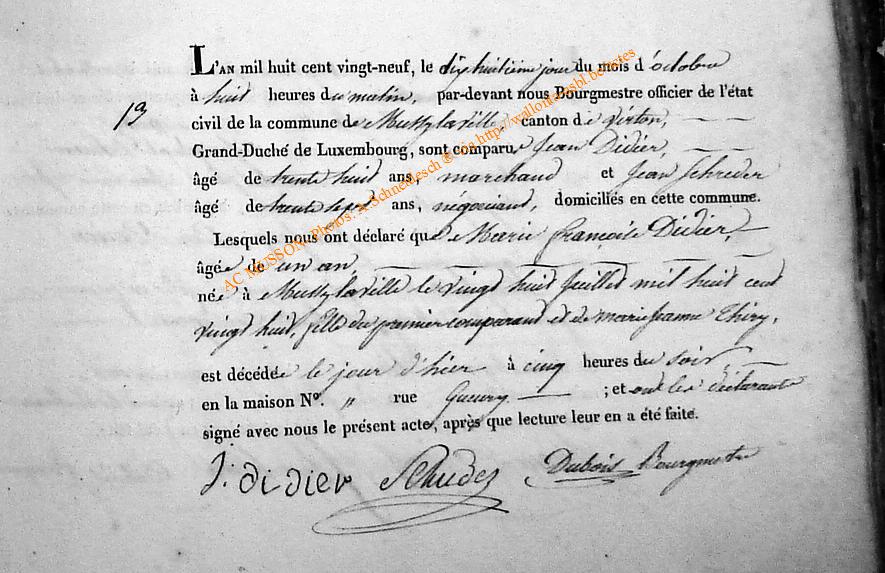 L'AN mil huit cent vingt-neuf, le dix huitième jour du mois d'octobre
à huit heures du matin, par-devant nous Bourgmestre officier de l'état
13
civil de la commune de Mussy la ville, canton de Virton,
Grand-Duché de Luxembourg, sont comparus Jean Didier,
âgé de trente huit ans, marchand et Jean Schreder
âgé de trente sept ans, négociand, domiciliés en cette commune.
Lesquels nous ont déclaré que Marie françoise Didier,
âgée de un an,
née à Mussy la ville le vingt huit juillet mil huit cent
vingt huit, fille du premier comparant et de marie jeanne Thiry,
est décédée le jour d'hier à cinq heures du soir,
en la maison N°. „ rue ; et ont les déclarants
signé avec nous le présent acte, après que lecture leur en a été faite.
J: didier Dubois Bourgmestre
AC MUSSON, Photos: A Schneidesch ® éa http://wallonia.asbl.be/actes